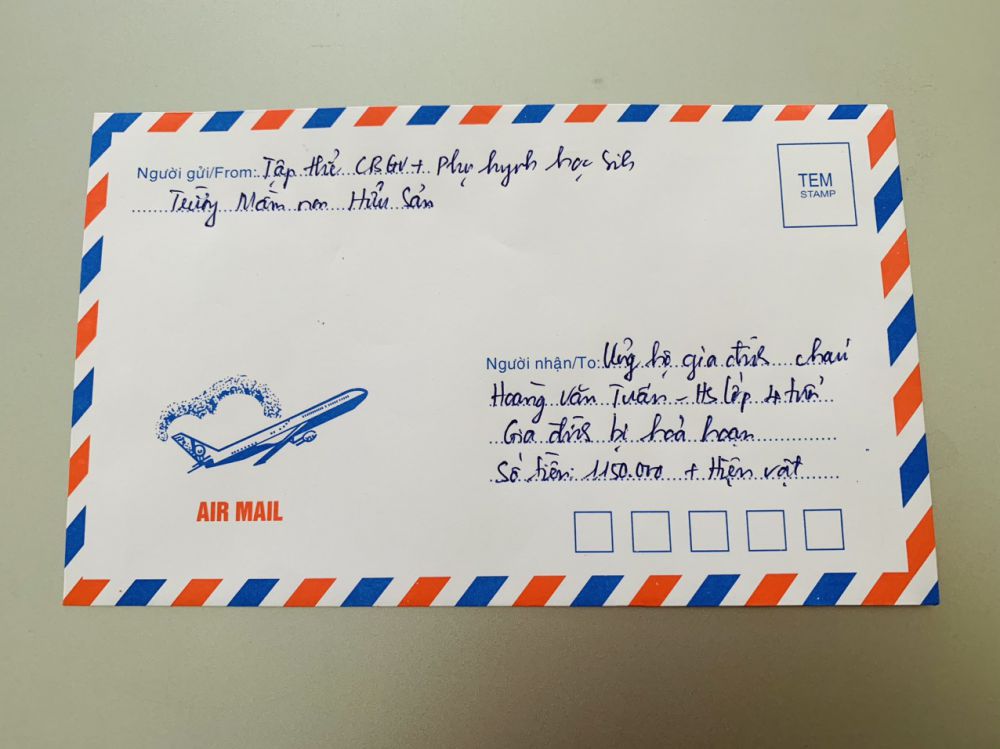 Người gửi/From: Tập thể CBGV + Phụ huynh học sinh
Trường Mầm non Hữu Sản
TEM
STAMP
Người nhận/To: Ủng hộ gia đình cháu
Hoàng Văn Tuấn - HS lớp 4 tuổi
Gia đình bị hoả hoạn
Số tiền: 1150.000 + Hiện vật
AIR MAIL